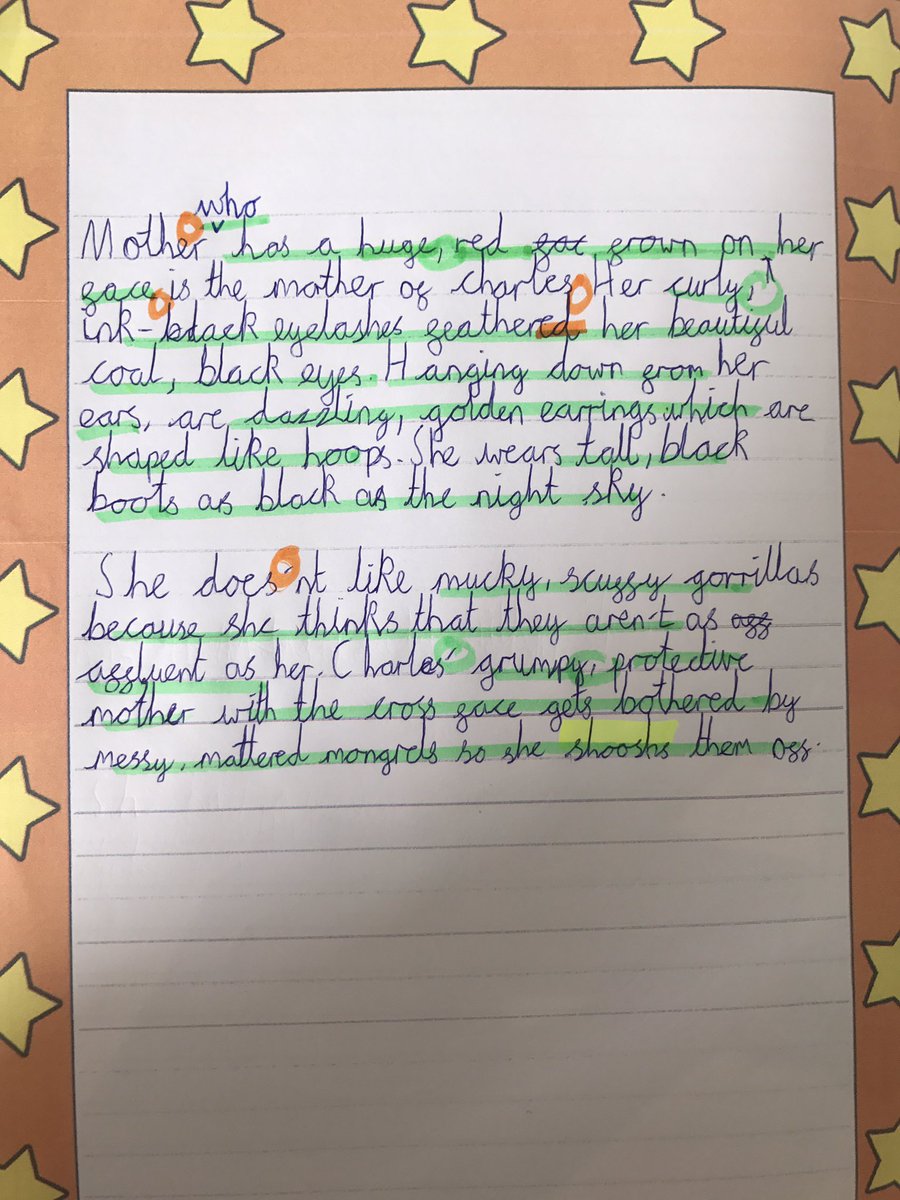 who
Mother has a huge, red frown on her
face is the mother of Charles. Her curly,
ink-black eyelashes feathered her beautiful
coal, black eyes. Hanging down from her
ears, are dazzling, golden earrings which are
shaped like hoops. She wears tall, black
boots as black as the night sky.
She does'nt like mucky, scuffy gorrillas
because she thinks that they aren't as
affluent as her. Charles' grumpy, protective
mother with the cross face gets bothered by
messy, mattered mongrels so she shooshs them off.